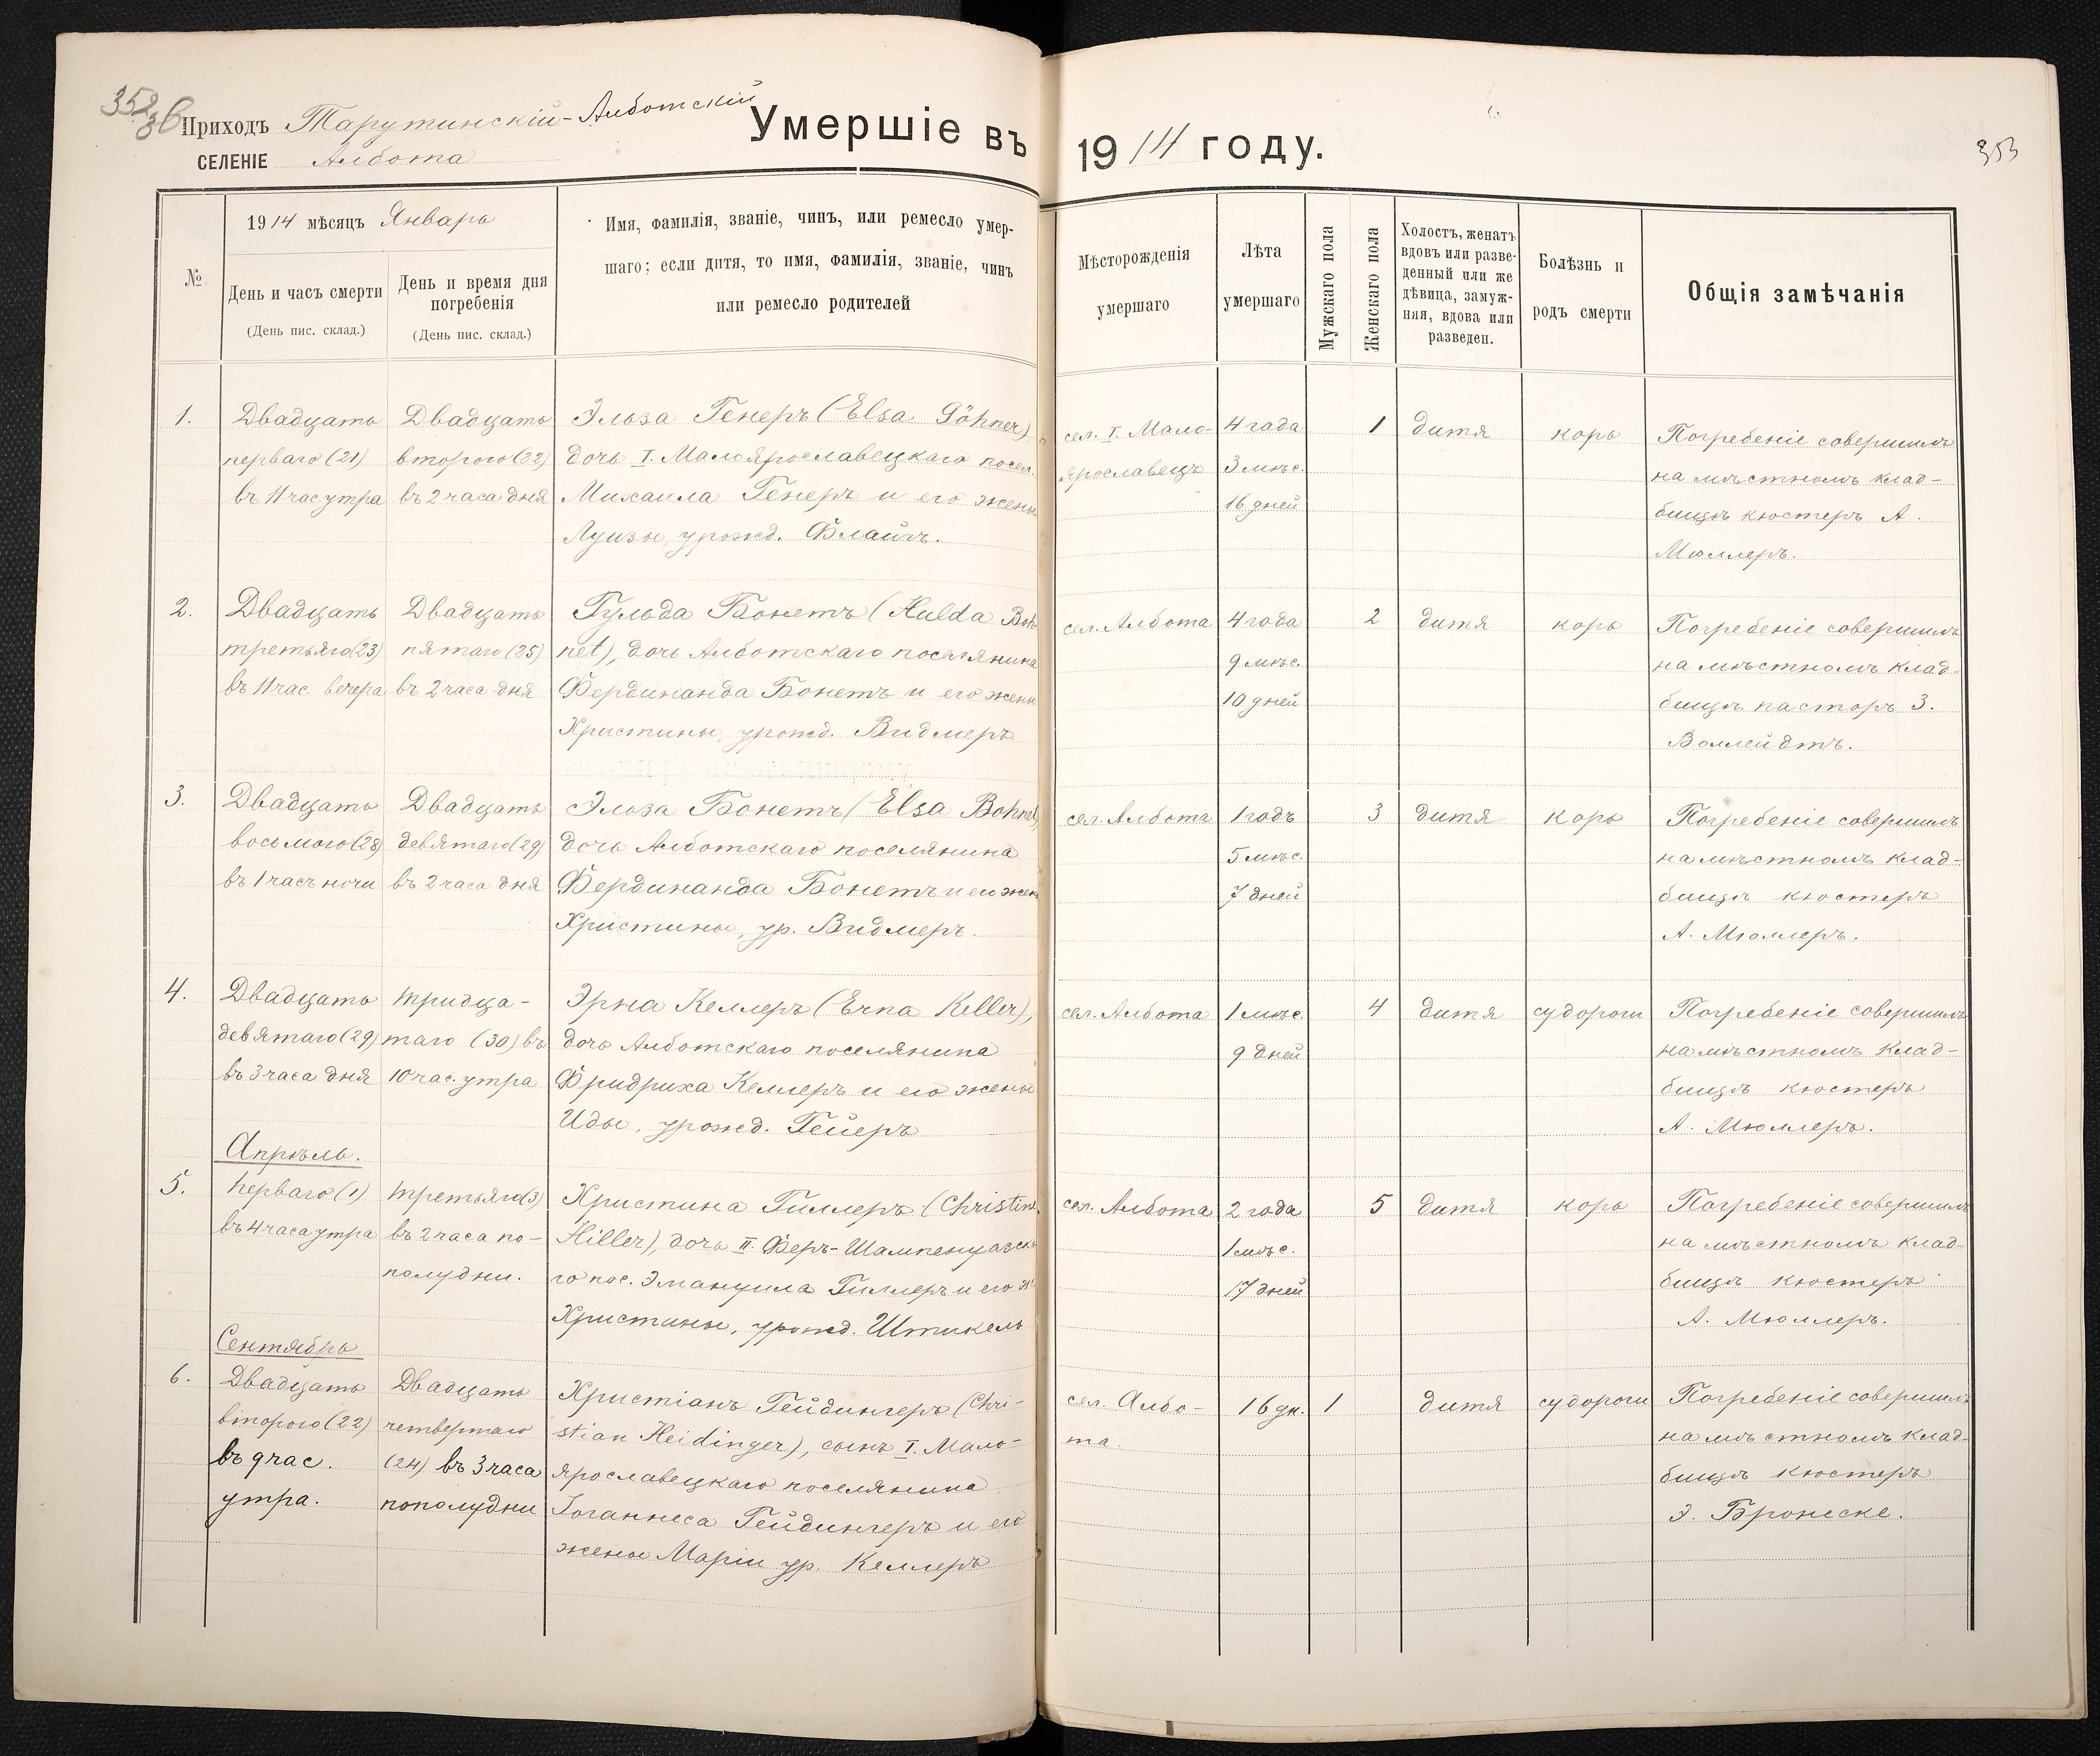 352
зв
353
Приходъ Тарутинскій-Алботскій
СЕЛЕНІЕ Албота
Умершіе въ 1914 году.
№
1914 мѣсяцъ Январь
День и часъ смерти
(День пис. склад.)
День и время дня
погребенія
(День пис. склад.)
Имя, фамилія, званіе, чинъ, или ремесло умер-
шаго; если дитя, то имя, фамилія, званіе, чинъ
или ремесло родителей
Мѣсторожденія
умершаго
Лѣта
умершаго
Мужскаго пола
Женскаго пола
Холостъ, женатъ
вдовъ или разве-
денный или же
дѣвица, замуж-
няя, вдова или
разведен.
Болѣзнь и
родъ смерти
Общія замѣчанія
1.
Двадцать
перваго (21)
въ 11 час утра
Двадцать
второго (22)
въ 2 часа дня
Эльза Генеръ (Elsa Göhner)
дочь I. Малоярославецкаго посел.
Михаила Генеръ и его жены
Луизы, урожд. Флайгъ.
сел. I. Мало-
ярославецъ
4 года
3 мѣс.
16 дней
1
дитя
корь
Погребеніе совершилъ
на мѣстномъ клад-
бищѣ кюстеръ А.
Мюллеръ.
2.
Двадцать
третьяго (23)
въ 11 час. вечера
Двадцать
пятаго (25)
въ 2 часа дня
Гульда Бонетъ (Hulda Boh-
net), дочь Алботскаго поселянина
Фердинанда Бонетъ и его жены
Христины, урожд. Видмеръ
сел. Албота
4 года
9 мѣс.
10 дней
2
дитя
корь
Погребеніе совершилъ
на мѣстномъ клад-
бищѣ пасторъ З.
Воллейдтъ.
3.
Двадцать
восьмого (28)
въ 1 часъ ночи
Двадцать
девятаго (29)
въ 2 часа дня
Эльза Бонетъ (Elsa Bohnet)
дочь Алботскаго поселянина
Фердинанда Бонетъ и его жены
Христины, ур. Видмеръ.
сел. Албота
1 годъ
5 мѣс.
7 дней
3
дитя
корь
Погребеніе совершилъ
на мѣстномъ клад-
бищѣ кюстеръ
А. Мюллеръ.
4.
Двадцать
девятаго (29)
въ 3 часа дня
тридца-
таго (30) въ
10 час. утра
Эрна Келлеръ (Erna Keller),
дочь Алботскаго поселянина
Фридриха Келлеръ и его жены
Иды, урожд. Гейеръ
сел. Албота
1 мѣс.
9 дней
4
дитя
судороги
Погребеніе совершилъ
на мѣстномъ клад-
бищѣ кюстеръ
А. Мюллеръ.
Апрѣль.
5.
перваго (1)
въ 4 часа утра
третьяго (3)
въ 2 часа по-
полудни.
Христина Гиллеръ (Christine
Hiller), дочь II. Феръ-Шампенуазска-
го пос. Эмануила Гиллеръ и его ж.
Христины, урожд. Штикель
сел. Албота
2 года
1 мѣс.
17 дней
5
дитя
корь
Погребеніе совершилъ
на мѣстномъ клад-
бищѣ кюстеръ
А. Мюллеръ.
Сентябрь
6.
Двадцать
второго (22)
въ 9 час.
утра.
Двадцать
четвертаго
(24) въ 3 часа
пополудни
Христіанъ Гейдингеръ (Chri-
stian Heidinger), сынъ I. Мало-
ярославецкаго поселянина
Іоганнеса Гейдингеръ и его
жены Маріи ур. Келлеръ
сел. Албо-
та.
16 дн.
1
дитя
судороги
Погребеніе совершилъ
на мѣстномъ клад-
бищѣ кюстеръ
Э. Бронеске.